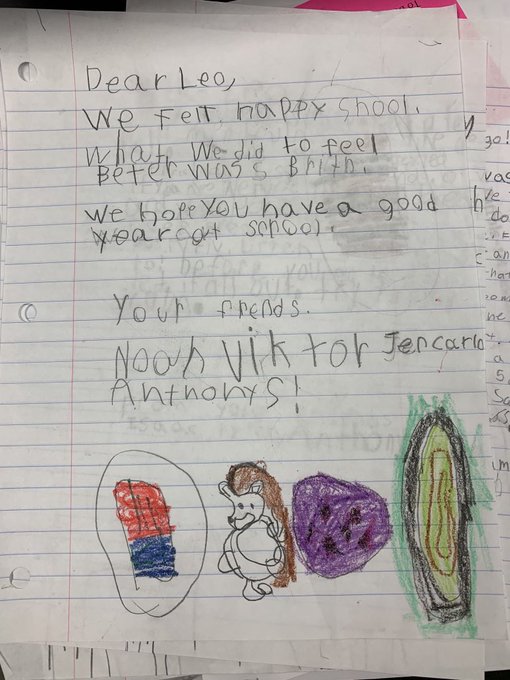 Dear Leo,
We FelT happy shool.
What We did to feel
Beter was Brith.
We hope you have a good
year at school.
Your frends.
Noah Viktor Jencarlo
Anthonys!
go!